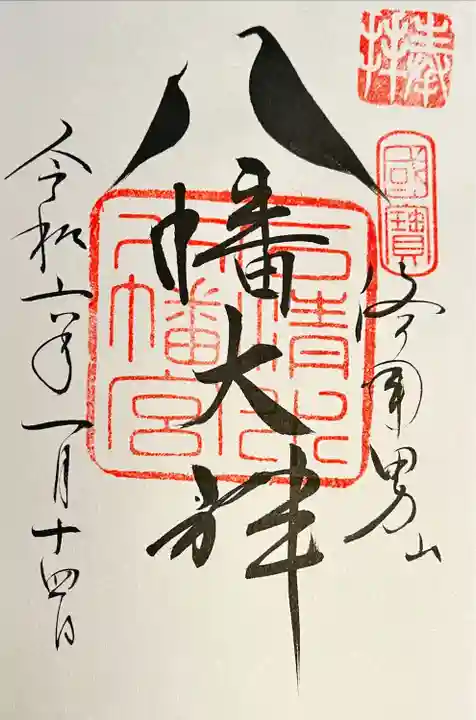 奉拝
國寶
男山
八幡大神
石清水
八幡宮
令和六年一月十四日